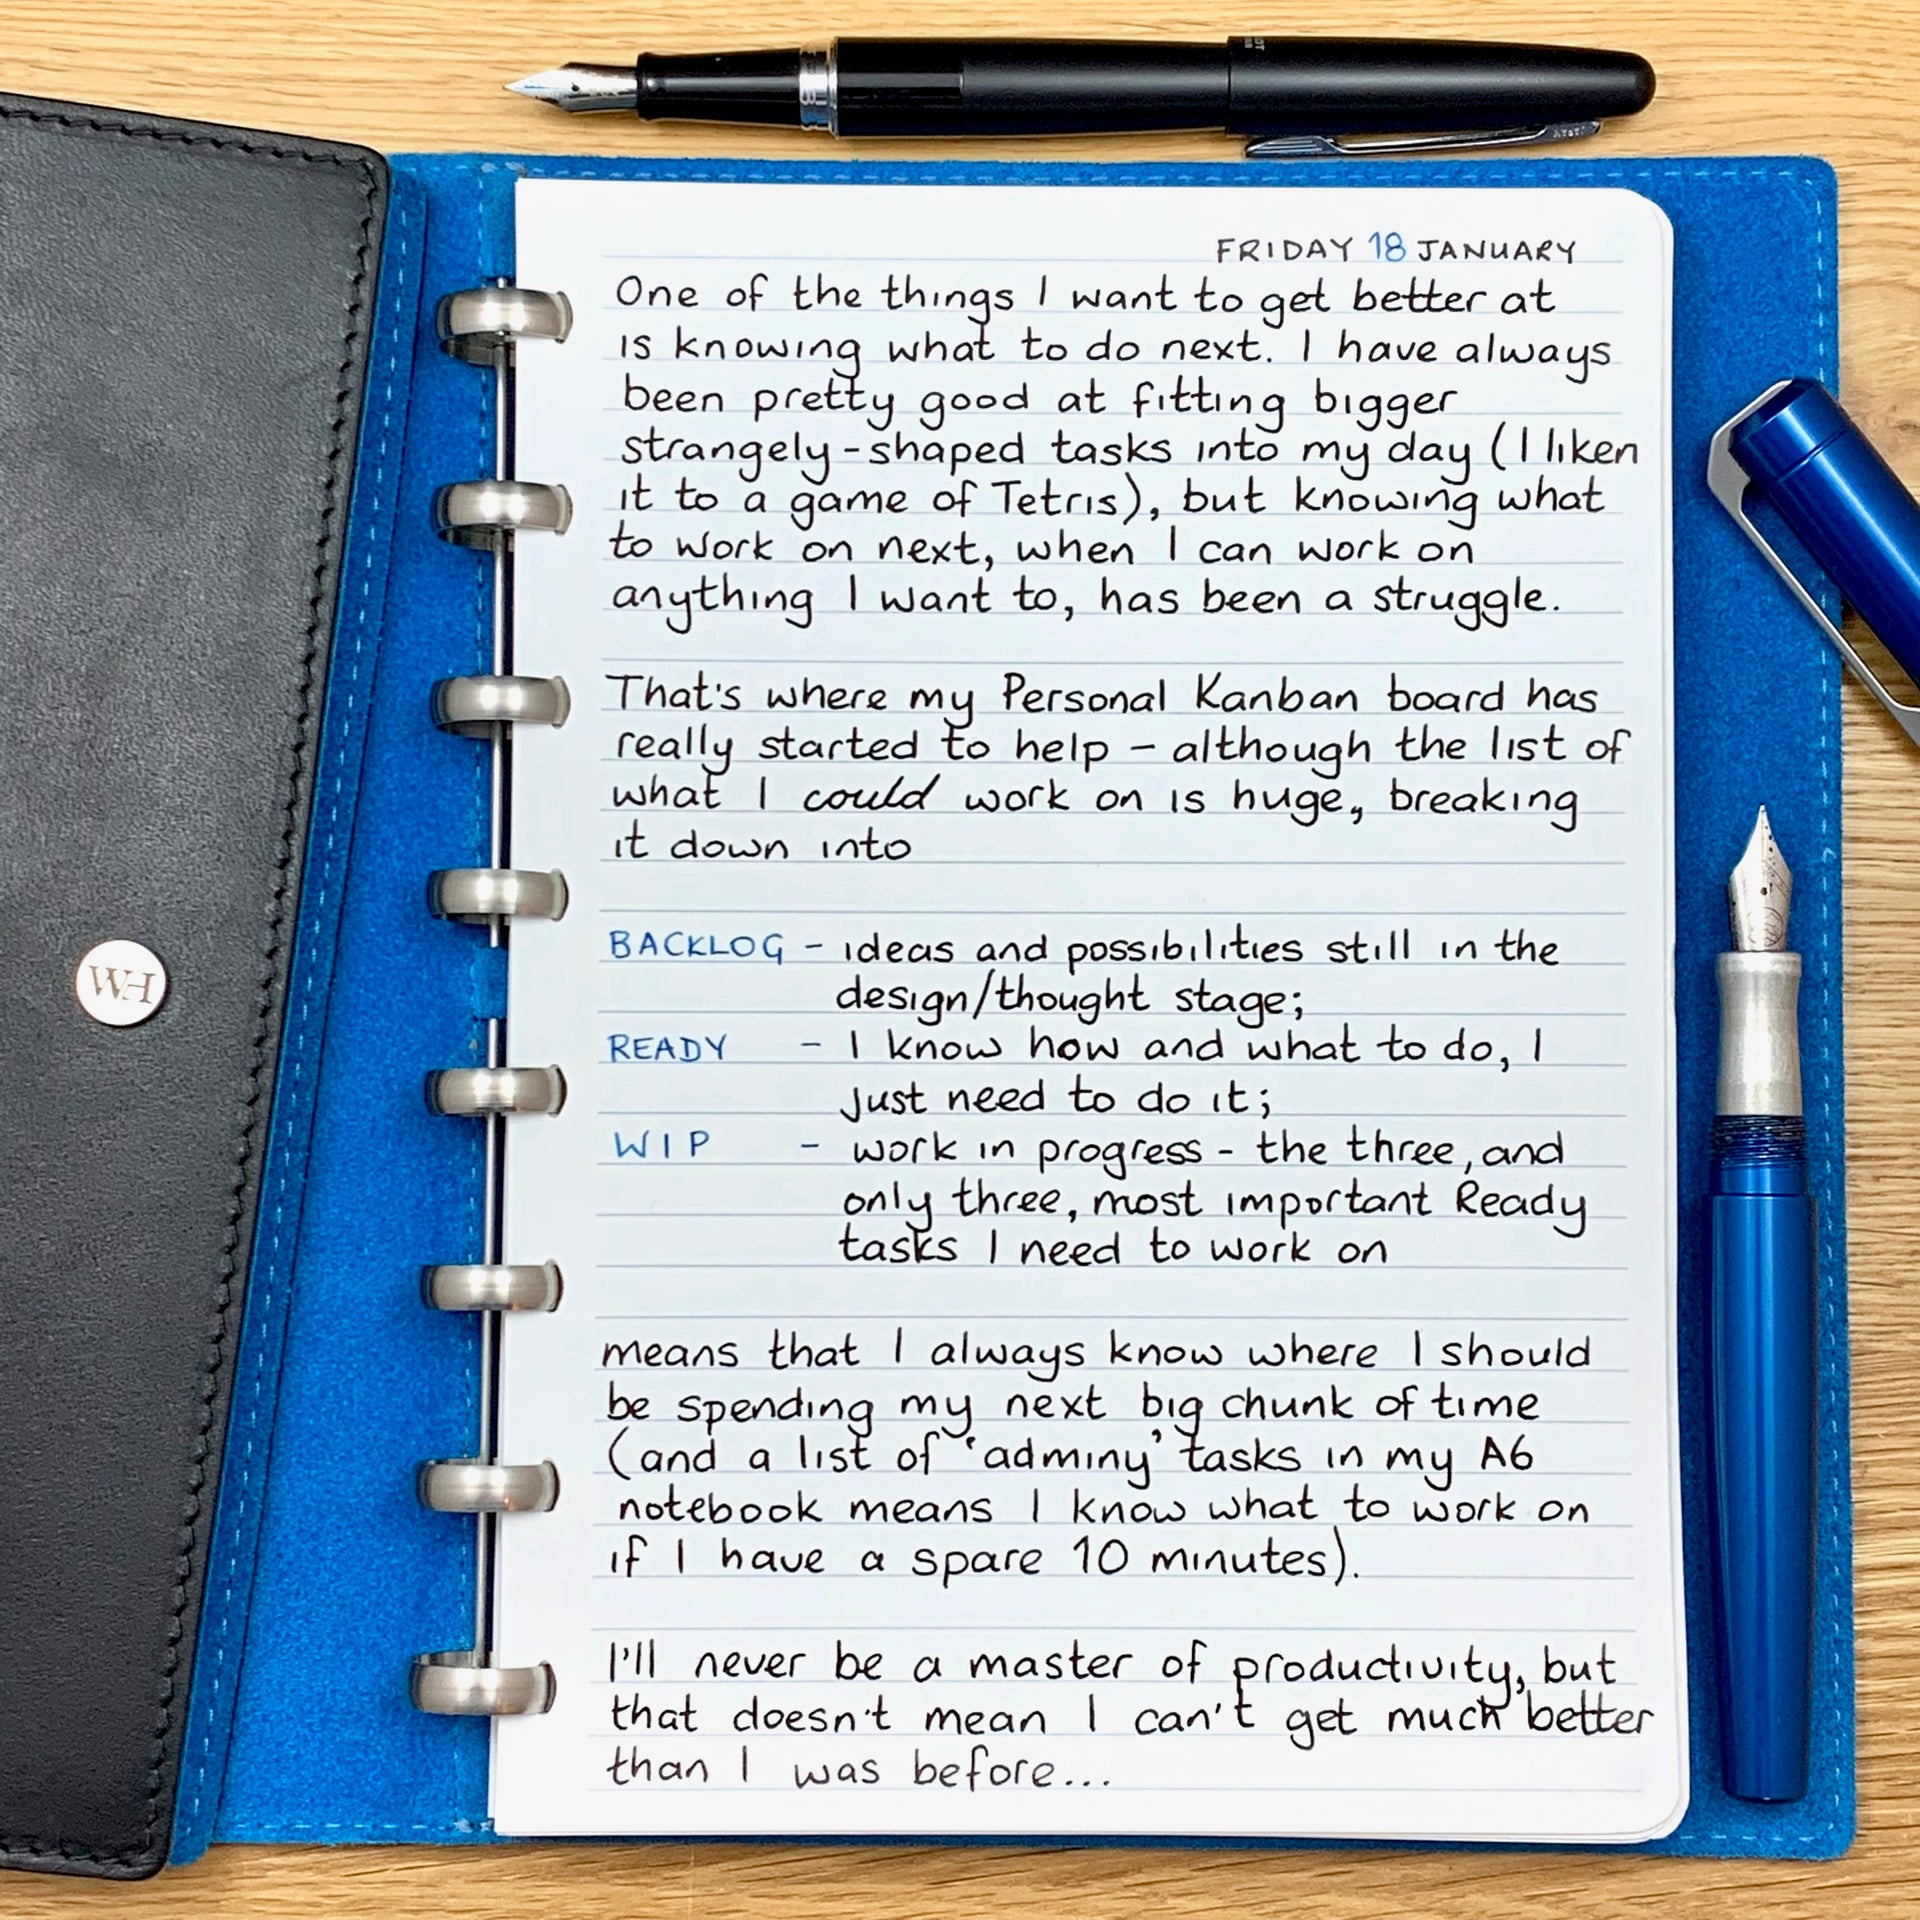 FRIDAY 18 JANUARY
One of the things I want to get better at
is knowing what to do next. I have always
been pretty good at fitting bigger
strangely-shaped tasks into my day (I liken
it to a game of Tetris), but knowing what
to work on next, when I can work on
anything I want to, has been a struggle.
That's where my Personal Kanban board has
really started to help - although the list of
what I could work on is huge, breaking
it down into
BACKLOG - ideas and possibilities still in the
design/thought stage;
READY - I know how and what to do, I
just need to do it;
WIP - work in progress - the three, and
only three, most important Ready
tasks I need to work on
means that I always know where I should
be spending my next big chunk of time
(and a list of 'adminy' tasks in my A6
notebook means I know what to work on
if I have a spare 10 minutes).
I'll never be a master of productivity, but
that doesn't mean I can't get much better
than I was before...
WH